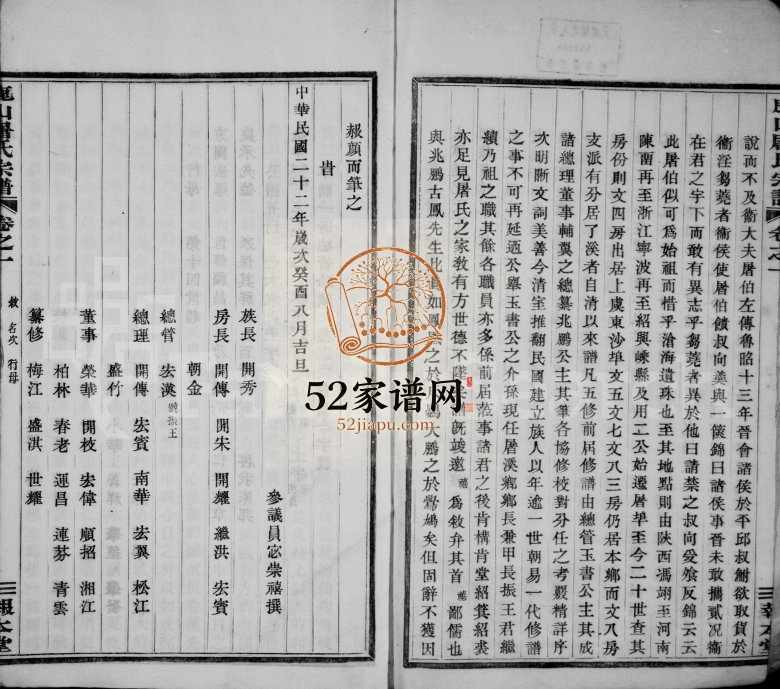 說而不及衞大夫屠伯左傳魯昭十三年晉會諸侯於平邱叔鮒欲取貨於
衞淫芻蕘者衞侯使屠伯饋叔向羹與一篋錦曰諸侯事晉未敢攜貳况衞
在君之宇下而敢有異志乎芻蕘者異於他日請禁之叔向受羹反錦云云
此屠伯似可為始祖而惜乎滄海遺珠也至其地點則由陝西馮翊至河南
陳留再至浙江寧波再至紹興嵊縣及用二公始遷屠埠至今二十世查其
房份則文四房出居上虞東沙埠文五文七文八三房仍居本鄉而文八房
支派有分居了溪者自清以來譜凡五修前居修譜由總管玉書公主其成
諸總理董事輔翼之總纂兆鵬公主其筆各協修校對分任之考覈精詳序
次明晰文詞美善今清室推翻民國建立族人以年逾一世朝易一代修譜
之事不可再延迺公舉玉書公之介孫現任屠溪鄉鄉長兼甲長振王君繼
續乃祖之職其餘各職員亦多係前屆蒞事諸君之後肯構肯堂紹箕紹裘
亦足見屠氏之家教有方世德不墜 譜旣竣邀 禧 為敘弁其首 禧 鄙儒也
與兆鵬古鳳先生比 如鳳 之於 大鵬之於鷽鳩矣但固辭不獲因
赧顏而筆之
旹
中華民國二十二年歲次癸酉八月吉旦
參議員宓崇禧撰
族長 開秀
房長 開傳 開朱 開耀 繼洪 宏賓
朝金
總管 宏漢 號振王
總理 開傳 宏賓 南華 宏翼 松江
盛竹
董事 榮華 開枝 宏偉 順招 湘江
柏林 春老 運昌 連芬 青雲
纂修 梅江 盛淇 世耀
山屠氏宗譜 卷之一
敘 名次 行母
三 報本堂
52家谱网
52jiapu.com